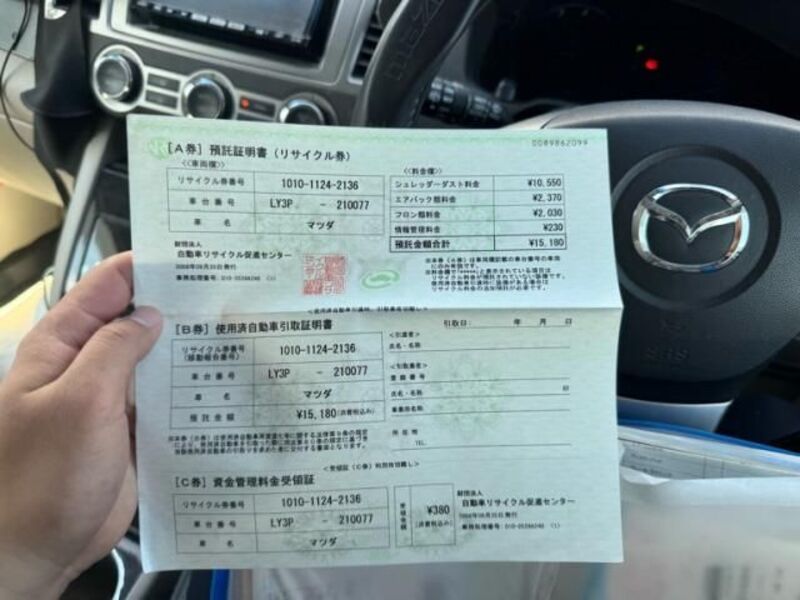 0089862099
[A券] 預託証明書(リサイクル券)
<<車両欄>>
リサイクル券番号 1010-1124-2136
車台番号 LY3P - 210077
車名 マツダ
<<料金欄>>
シュレッダーダスト料金 ¥10,550
エアバッグ類料金 ¥2,370
フロン類料金 ¥2,030
情報管理料金 ¥230
預託金額合計 ¥15,180
財団法人
自動車リサイクル促進センター
[B券] 使用済自動車引取証明書
引取日: 年 月 日
リサイクル券番号
(移動報告番号) 1010-1124-2136
車台番号 LY3P - 210077
車名 マツダ
預託金額 ¥15,180(消費税込み)
<引渡者>
氏名・名称
<引取業者>
登録番号
氏名・名称 印
事業所名称
所在地
TEL.
<受領証(C券)利用時切離し>
[C券] 資金管理料金受領証
リサイクル券番号 1010-1124-2136
車台番号 LY3P - 210077
車名 マツダ
受領金額 ¥380
(消費税込み)
財団法人
自動車リサイクル促進センター